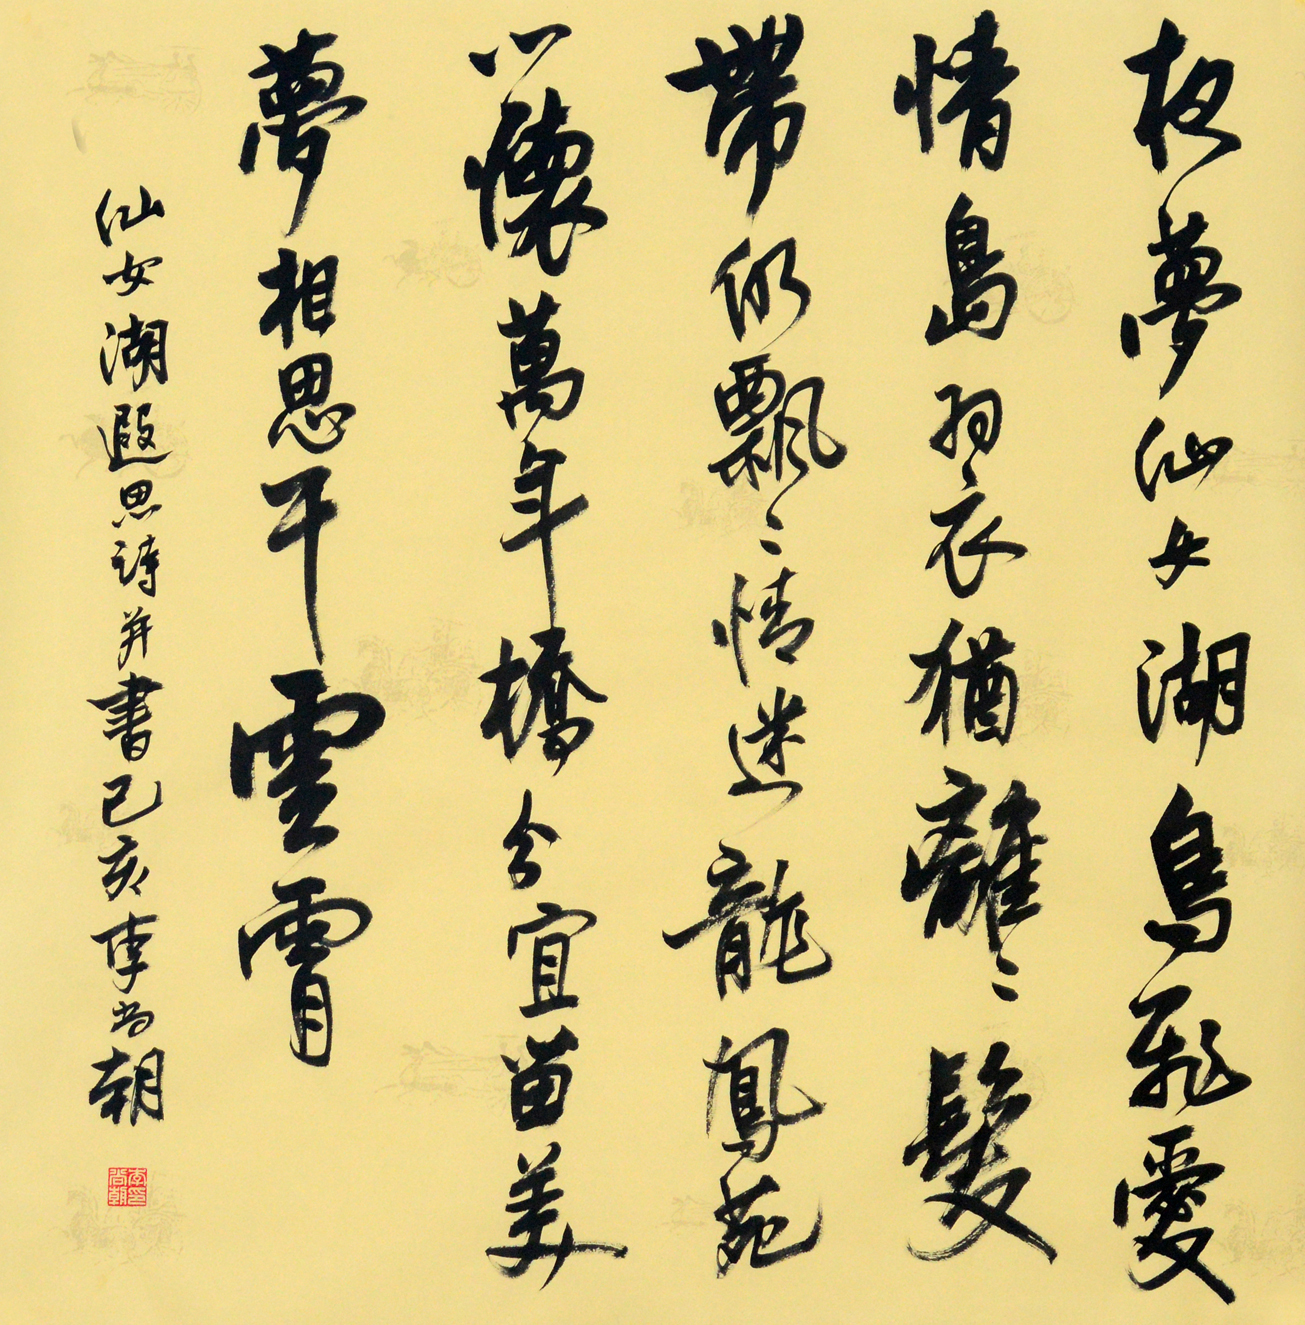 夜夢仙女湖鳥飛愛
情島羽衣猶離〻髮
帶仍飄〻情迷龍鳳苑
心懷萬年橋分宜苗美
夢相思干雲霄
仙女湖遐思詩并書己亥李尚朝
李印尚朝